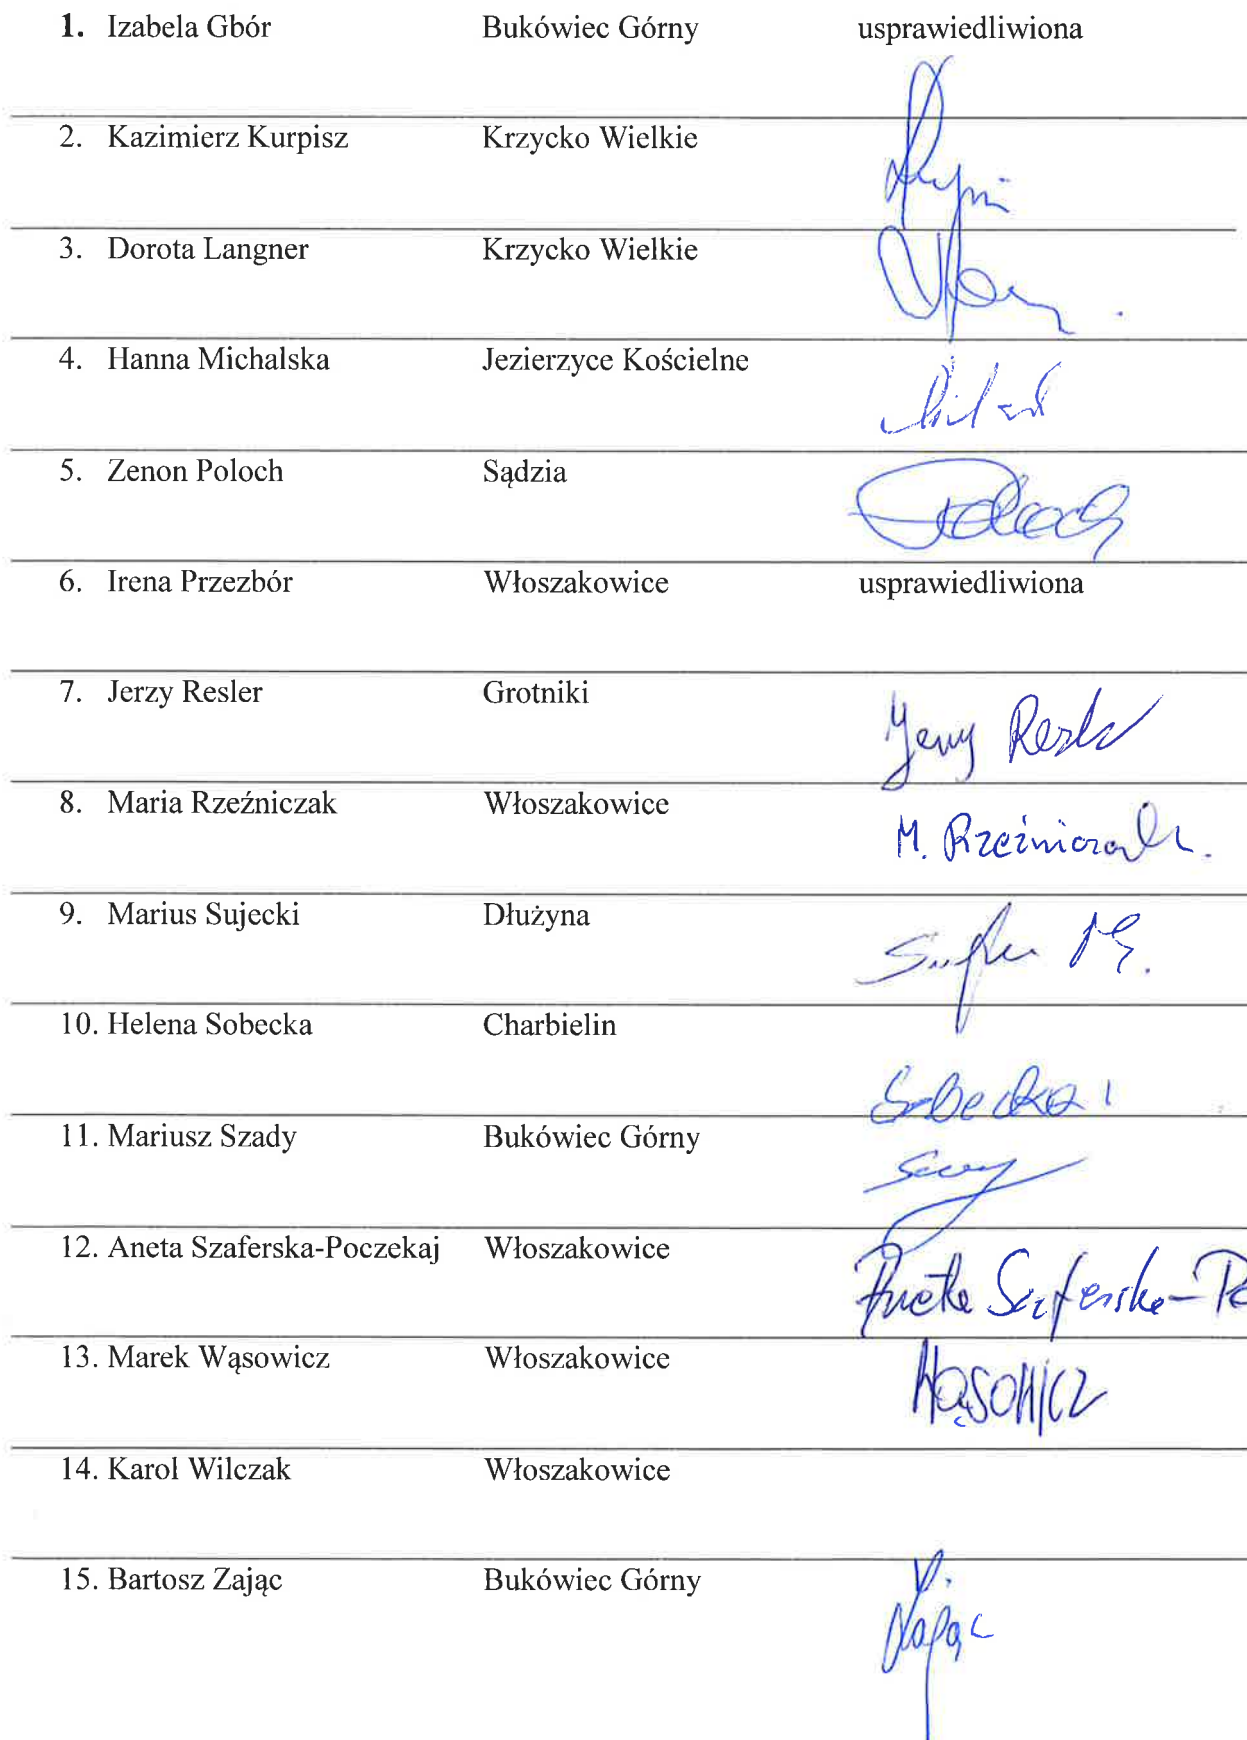 1. Izabela Gbór Bukówiec Górny usprawiedliwiona
2. Kazimierz Kurpisz Krzycko Wielkie
3. Dorota Langner Krzycko Wielkie
4. Hanna Michalska Jezierzyce Kościelne
5. Zenon Poloch Sądzia Poloch
6. Irena Przezbór Włoszakowice usprawiedliwiona
7. Jerzy Resler Grotniki Jerzy Resler
8. Maria Rzeźniczak Włoszakowice M. Rzeźniczak.
9. Marius Sujecki Dłużyna
10. Helena Sobecka Charbielin Sobecka
11. Mariusz Szady Bukówiec Górny
12. Aneta Szaferska-Poczekaj Włoszakowice Aneta Szaferska-Po
13. Marek Wąsowicz Włoszakowice Wąsowicz
14. Karol Wilczak Włoszakowice
15. Bartosz Zając Bukówiec Górny Zając